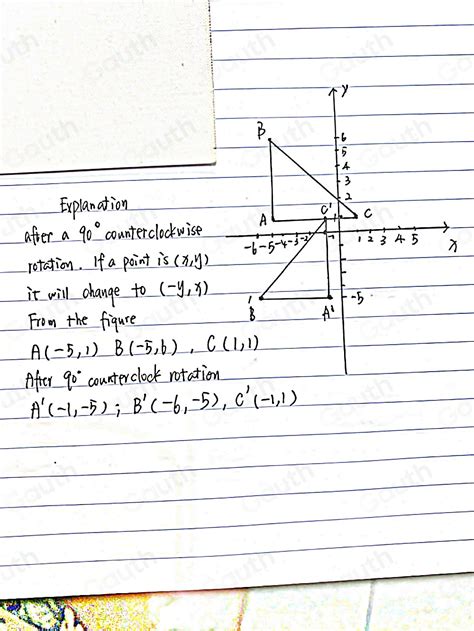 Explanation
after a 90° counterclockwise
rotation. If a point is (x,y)
it will change to (-y,x)
From the figure
A(-5,1) B(-5,6), C(1,1)
After 90° counterclock rotation
A'(-1,-5); B'(-6,-5), C'(-1,1)
y
B
6
5
4
3
2
C'
1
A
C
-6 -5 -4 -3 -2 -1
1 2 3 4 5
x
-5
B'
A'
Gauth